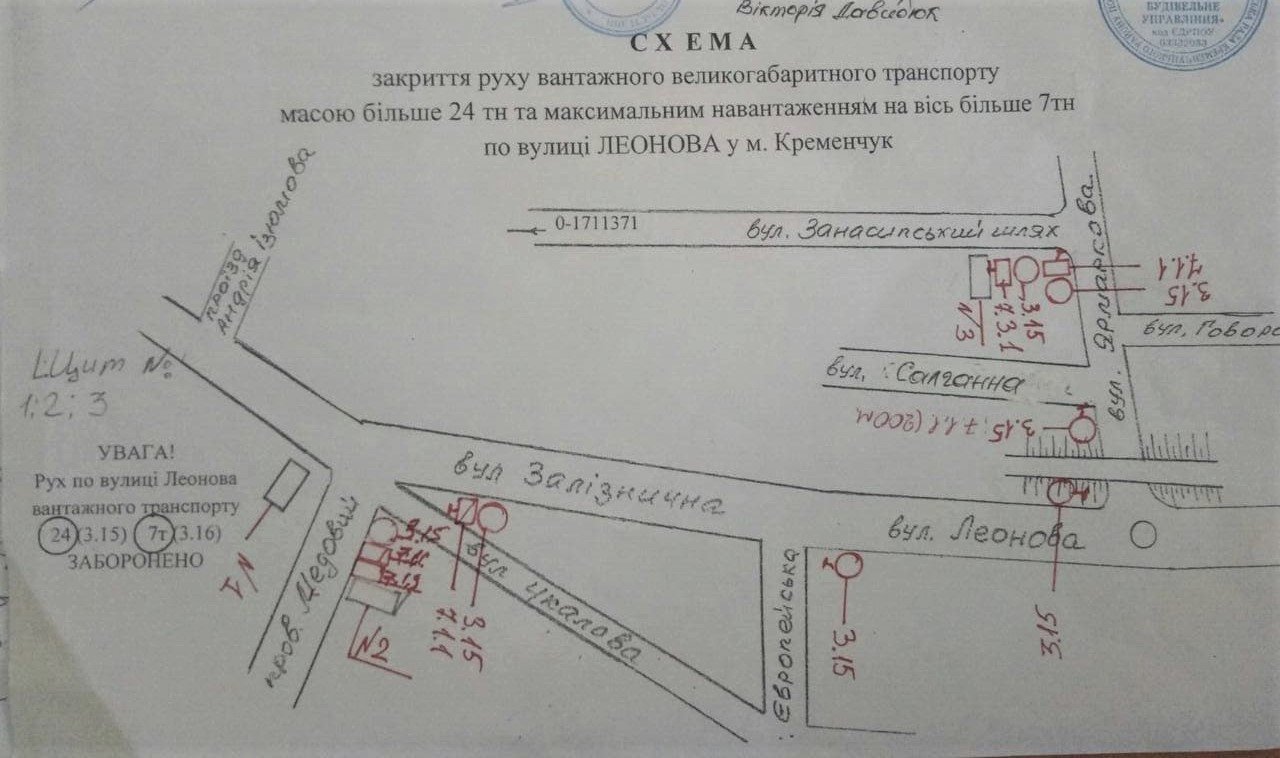 Вікторія Давидюк
БУДІВЕЛЬНЕ
УПРАВЛІННЯ»
код ЄДРПОУ
СХЕМА
закриття руху вантажного великогабаритного транспорту
масою більше 24 тн та максимальним навантаженням на вісь більше 7тн
по вулиці ЛЕОНОВА у м. Кременчук
проїзд
Андрія Ізюмова
0-1711371
вул. Занасипський шлях
вул. Ярмаркова
7.1.1
3.15
3.15
7.3.1
N3
вул. Говоро
вул. Салганна
3.15; 7.1.1 (200м)
Щит №
1; 2; 3
УВАГА!
Рух по вулиці Леонова
вантажного транспорту
24 (3.15) 7т (3.16)
ЗАБОРОНЕНО
N1
пров. Медовий
3.15
N2
вул Залізнична
вул Чкалова
3.15
7.1.1
Європейська
вул. Леонова
3.15
3.15